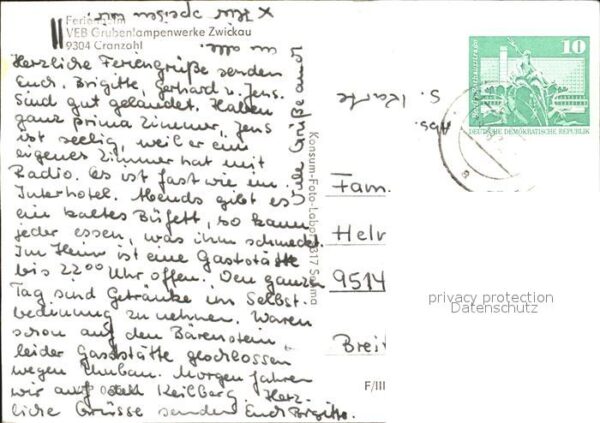 Ferienheim
VEB Grubenlampenwerke Zwickau
9304 Cranzahl
Herzliche Feriengrüße senden
Euch. Brigitte, Gerhard u. Jens.
Sind gut gelandet. Haben
ganz prima Zimmer, Jens
ist seelig, weil er ein
eigenes Zimmer hat mit
Radio. Es ist fast wie im
Interhotel. Abends gibt es
ein kaltes Büfett, so kann
jeder essen, was ihm schmeckt.
Im Heim ist eine Gaststätte
bis 22.00 Uhr offen. Den ganzen
Tag sind Getränke im Selbst.
bedienung zu nehmen. Waren
schon auf den Bärenstein
leider Gaststätte geschlossen
wegen Umbau. Morgen fahren
wir auf den Keilberg. Herz-
liche Grüsse senden Euch Brigitte.
Viele Grüße auch
an alle.
Konsum-Foto-Labor
Abs.
S. Karte
10
DEUTSCHE DEMOKRATISCHE REPUBLIK
Fam.
Helm
9514
Breit
F/III
privacy protection
Datenschutz